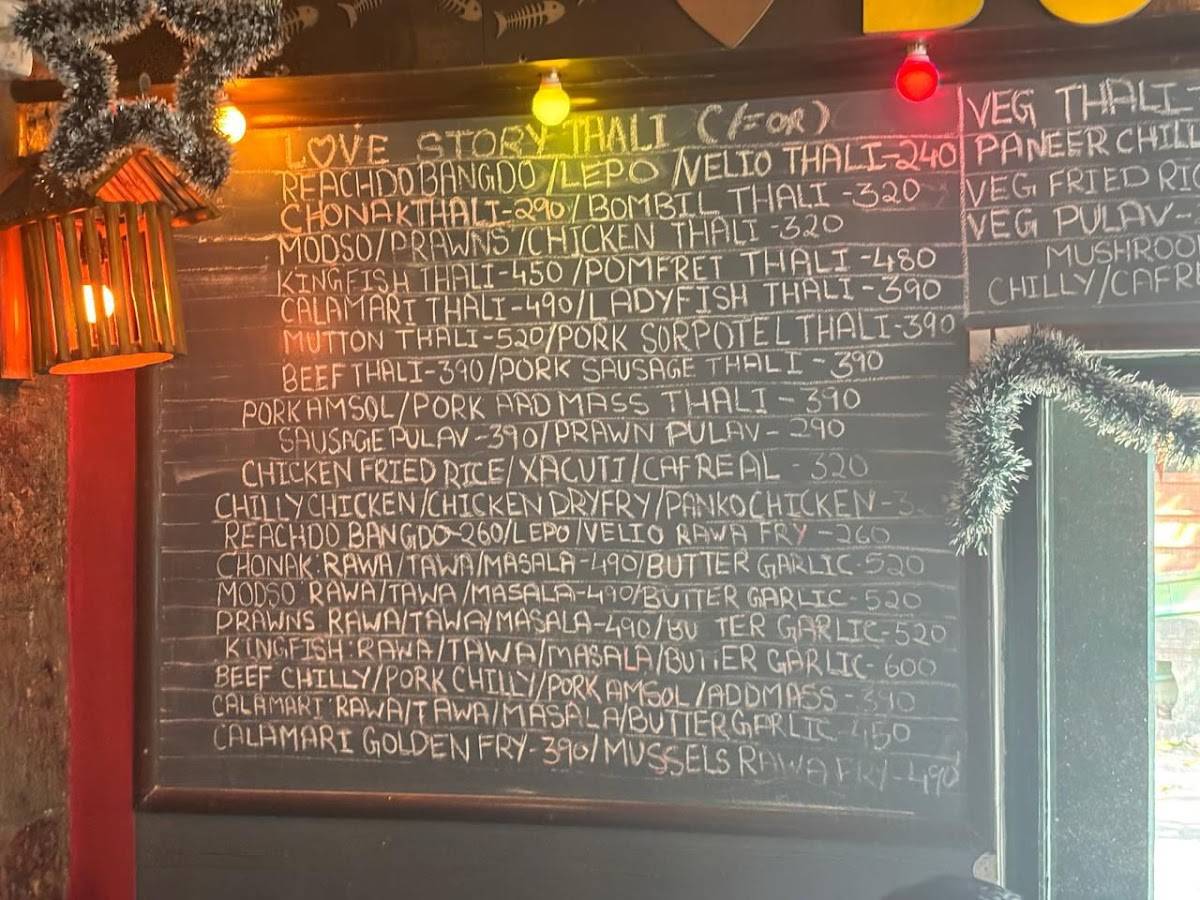 LOVE STORY THALI (/=OR)
REACHDO BANGDO/LEPO/VELIO THALI-240
CHONAK THALI-290/BOMBIL THALI-320
MODSO/PRAWNS/CHICKEN THALI-320
KINGFISH THALI-450/POMFRET THALI-480
CALAMARI THALI-490/LADYFISH THALI-390
MUTTON THALI-520/PORK SORPOTEL THALI-390
BEEF THALI-390/PORK SAUSAGE THALI-390
PORK AMSOL/PORK AAD MASS THALI-390
SAUSAGE PULAV-390/PRAWN PULAV-290
CHICKEN FRIED RICE/XACUTI/CAFREAL-320
CHILLY CHICKEN/CHICKEN DRYFRY/PANKO CHICKEN-
REACHDO BANGDO-260/LEPO/VELIO RAWA FRY-260
CHONAK:RAWA/TAWA/MASALA-490/BUTTER GARLIC-520
MODSO RAWA/TAWA/MASALA-490/BUTTER GARLIC-520
PRAWNS RAWA/TAWA/MASALA-490/BU TER GARLIC-520
KINGFISH:RAWA/TAWA/MASALA/BUTTER GARLIC-600
BEEF CHILLY/PORK CHILLY/PORK AMSOL/ADDMASS-390
CALAMARI:RAWA/TAWA/MASALA/BUTTER GARLIC-450
CALAMARI GOLDEN FRY-390/MUSSELS RAWA FRY-490
VEG THALI-
PANEER CHILL
VEG FRIED RIC
VEG PULAV-
MUSHROO
CHILLY/CAFR